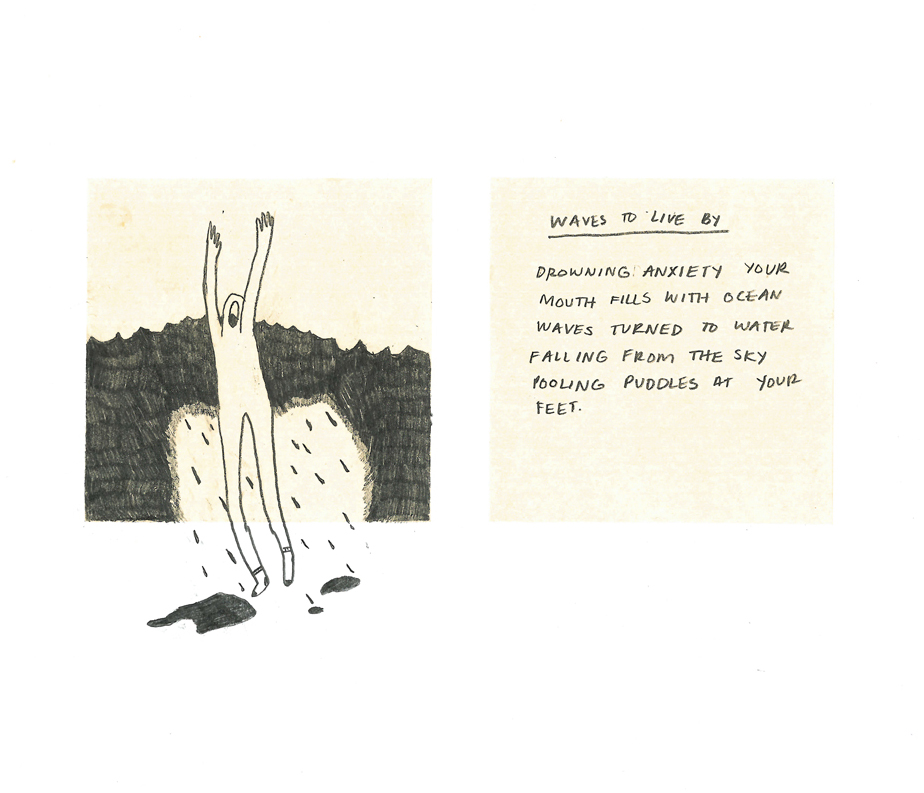 WAVES TO LIVE BY
DROWNING ANXIETY YOUR
MOUTH FILLS WITH OCEAN
WAVES TURNED TO WATER
FALLING FROM THE SKY
POOLING PUDDLES AT YOUR
FEET.